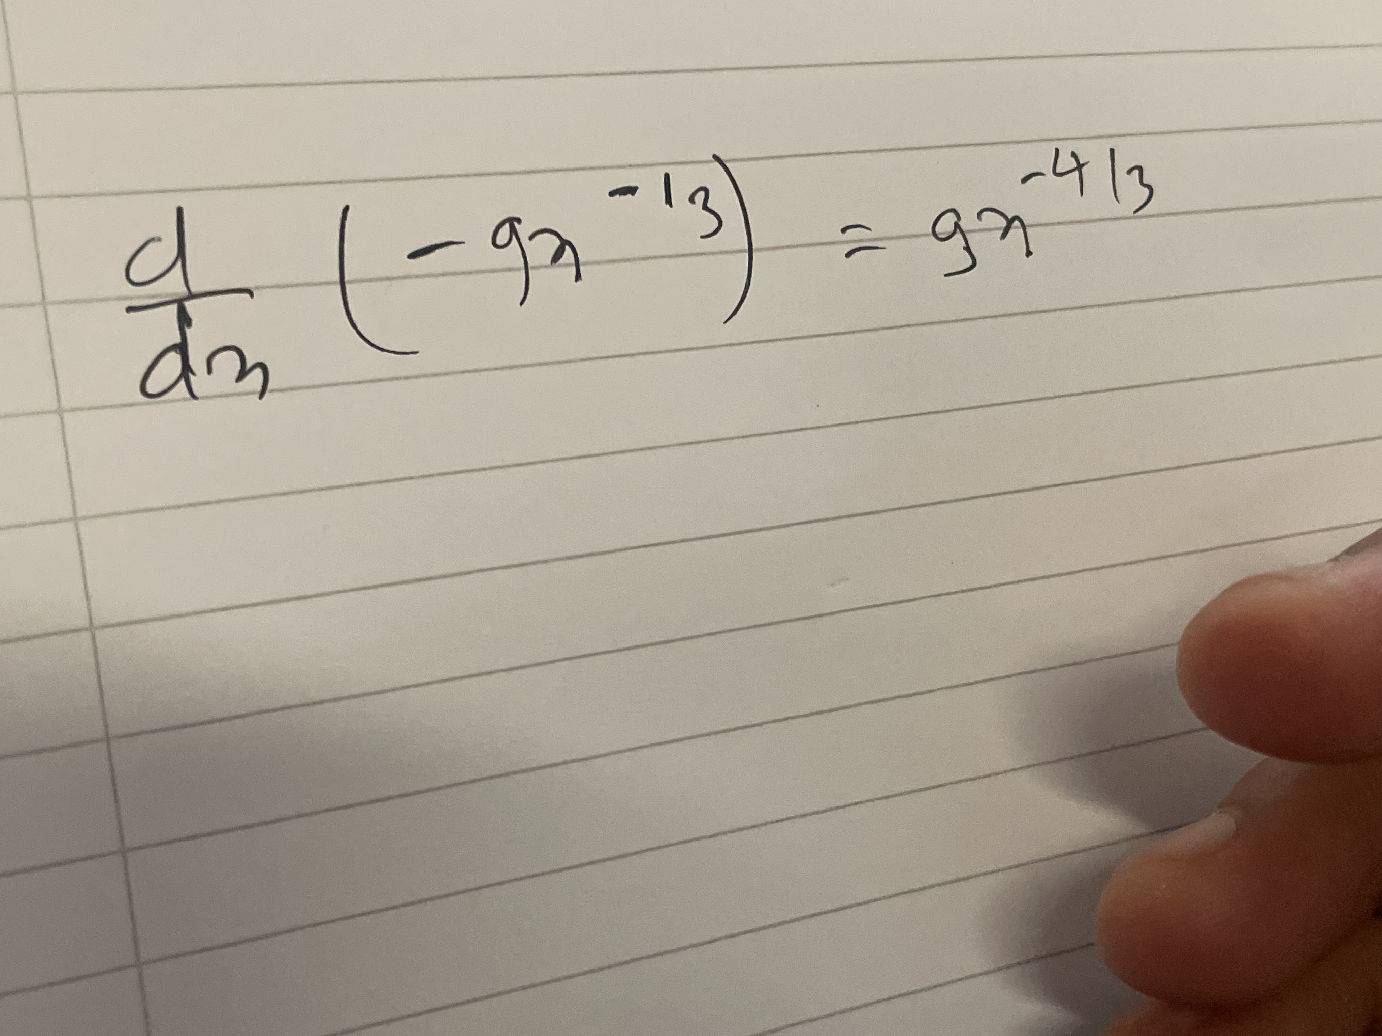 d/dx (-9x^{-1/3}) = 9x^{-4/3}